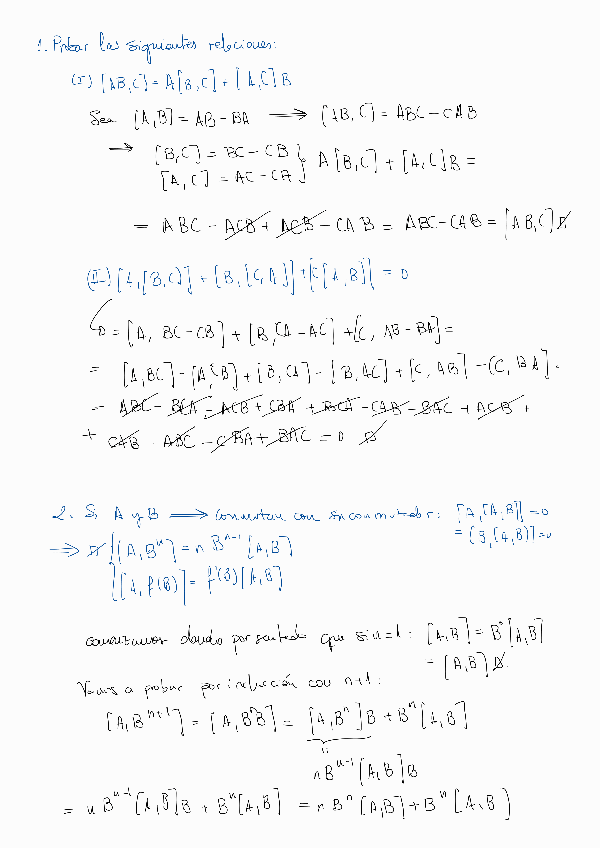 1. Probar las siguientes relaciones:
(I) [AB,C] = A[B,C] + [A,C]B
Sea [A,B] = AB - BA ⟶ [AB,C] = ABC - CAB
→ [B,C] = BC - CB
[A,C] = AC - CA } A[B,C] + [A,C]B =
= ABC - ACB + ACB - CAB = ABC - CAB = [AB,C]
(II) [A,[B,C]] + [B,[C,A]] + [C[A,B]] = 0
0 = [A, BC-CB] + [B,CA-AC] + [C, AB-BA] =
= [A,BC] - [A,CB] + [B,CA] - [B,AC] + [C,AB] - [C,BA] =
= ABC - BCA - ACB + CBA + BCA - CAB - BAC + ACB +
+ CAB - ABC - CBA + BAC = 0
2. Si A y B ⟹ conmutan con su conmutador: [A,[A,B]] = 0
= [B,[A,B]] = 0
→ [A,Bⁿ] = n Bⁿ⁻¹ [A,B]
[A, f(B)] = f'(B)[A,B]
comenzamos dando por sentado que si n=1: [A,B] = B⁰[A,B]
= [A,B]
Vamos a probar por inducción con n+1:
[A,Bⁿ⁺¹] = [A,BⁿB] = [A,Bⁿ]B + Bⁿ[A,B]
nBⁿ⁻¹[A,B]B
= n Bⁿ⁻¹[A,B]B + Bⁿ[A,B] = n Bⁿ[A,B] + Bⁿ[A,B]